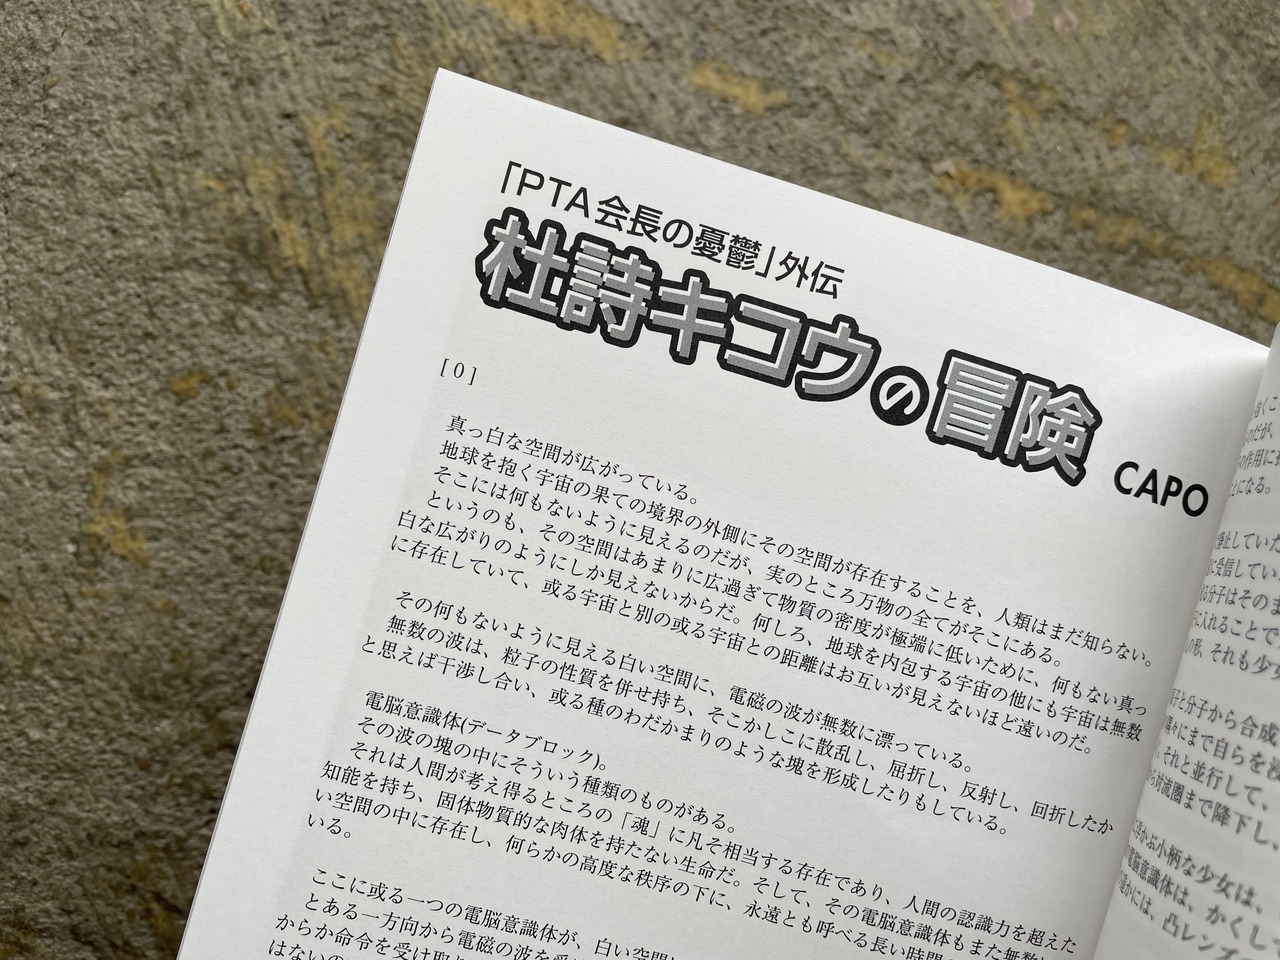 「PTA会長の憂鬱」外伝
杜詩キコウの冒険
CAPO
[0]
真っ白な空間が広がっている。
地球を抱く宇宙の果ての境界の外側にその空間が存在することを、人類はまだ知らない。
そこには何もないように見えるのだが、実のところ万物の全てがそこにある。
というのも、その空間はあまりに広過ぎて物質の密度が極端に低いために、何もない真っ
白な広がりのようにしか見えないからだ。何しろ、地球を内包する宇宙の他にも宇宙は無数
に存在していて、或る宇宙と別の或る宇宙との距離はお互いが見えないほど遠いのだ。
その何もないように見える白い空間に、電磁の波が無数に漂っている。
無数の波は、粒子の性質を併せ持ち、そこかしこに散乱し、屈折し、反射し、回折したか
と思えば干渉し合い、或る種のわだかまりのような塊を形成したりもしている。
電脳意識体(データブロック)。
その波の塊の中にそういう種類のものがある。
それは人間が考え得るところの「魂」に凡そ相当する存在であり、人間の認識力を超えた
知能を持ち、固体物質的な肉体を持たない生命だ。そして、その電脳意識体もまた無数に
い空間の中に存在し、何らかの高度な秩序の下に、永遠とも呼べる長い時間
いる。
ここに或る一つの電脳意識体が、白い空間
とある一方向から電磁の波を受
からか命令を受け取
はないの